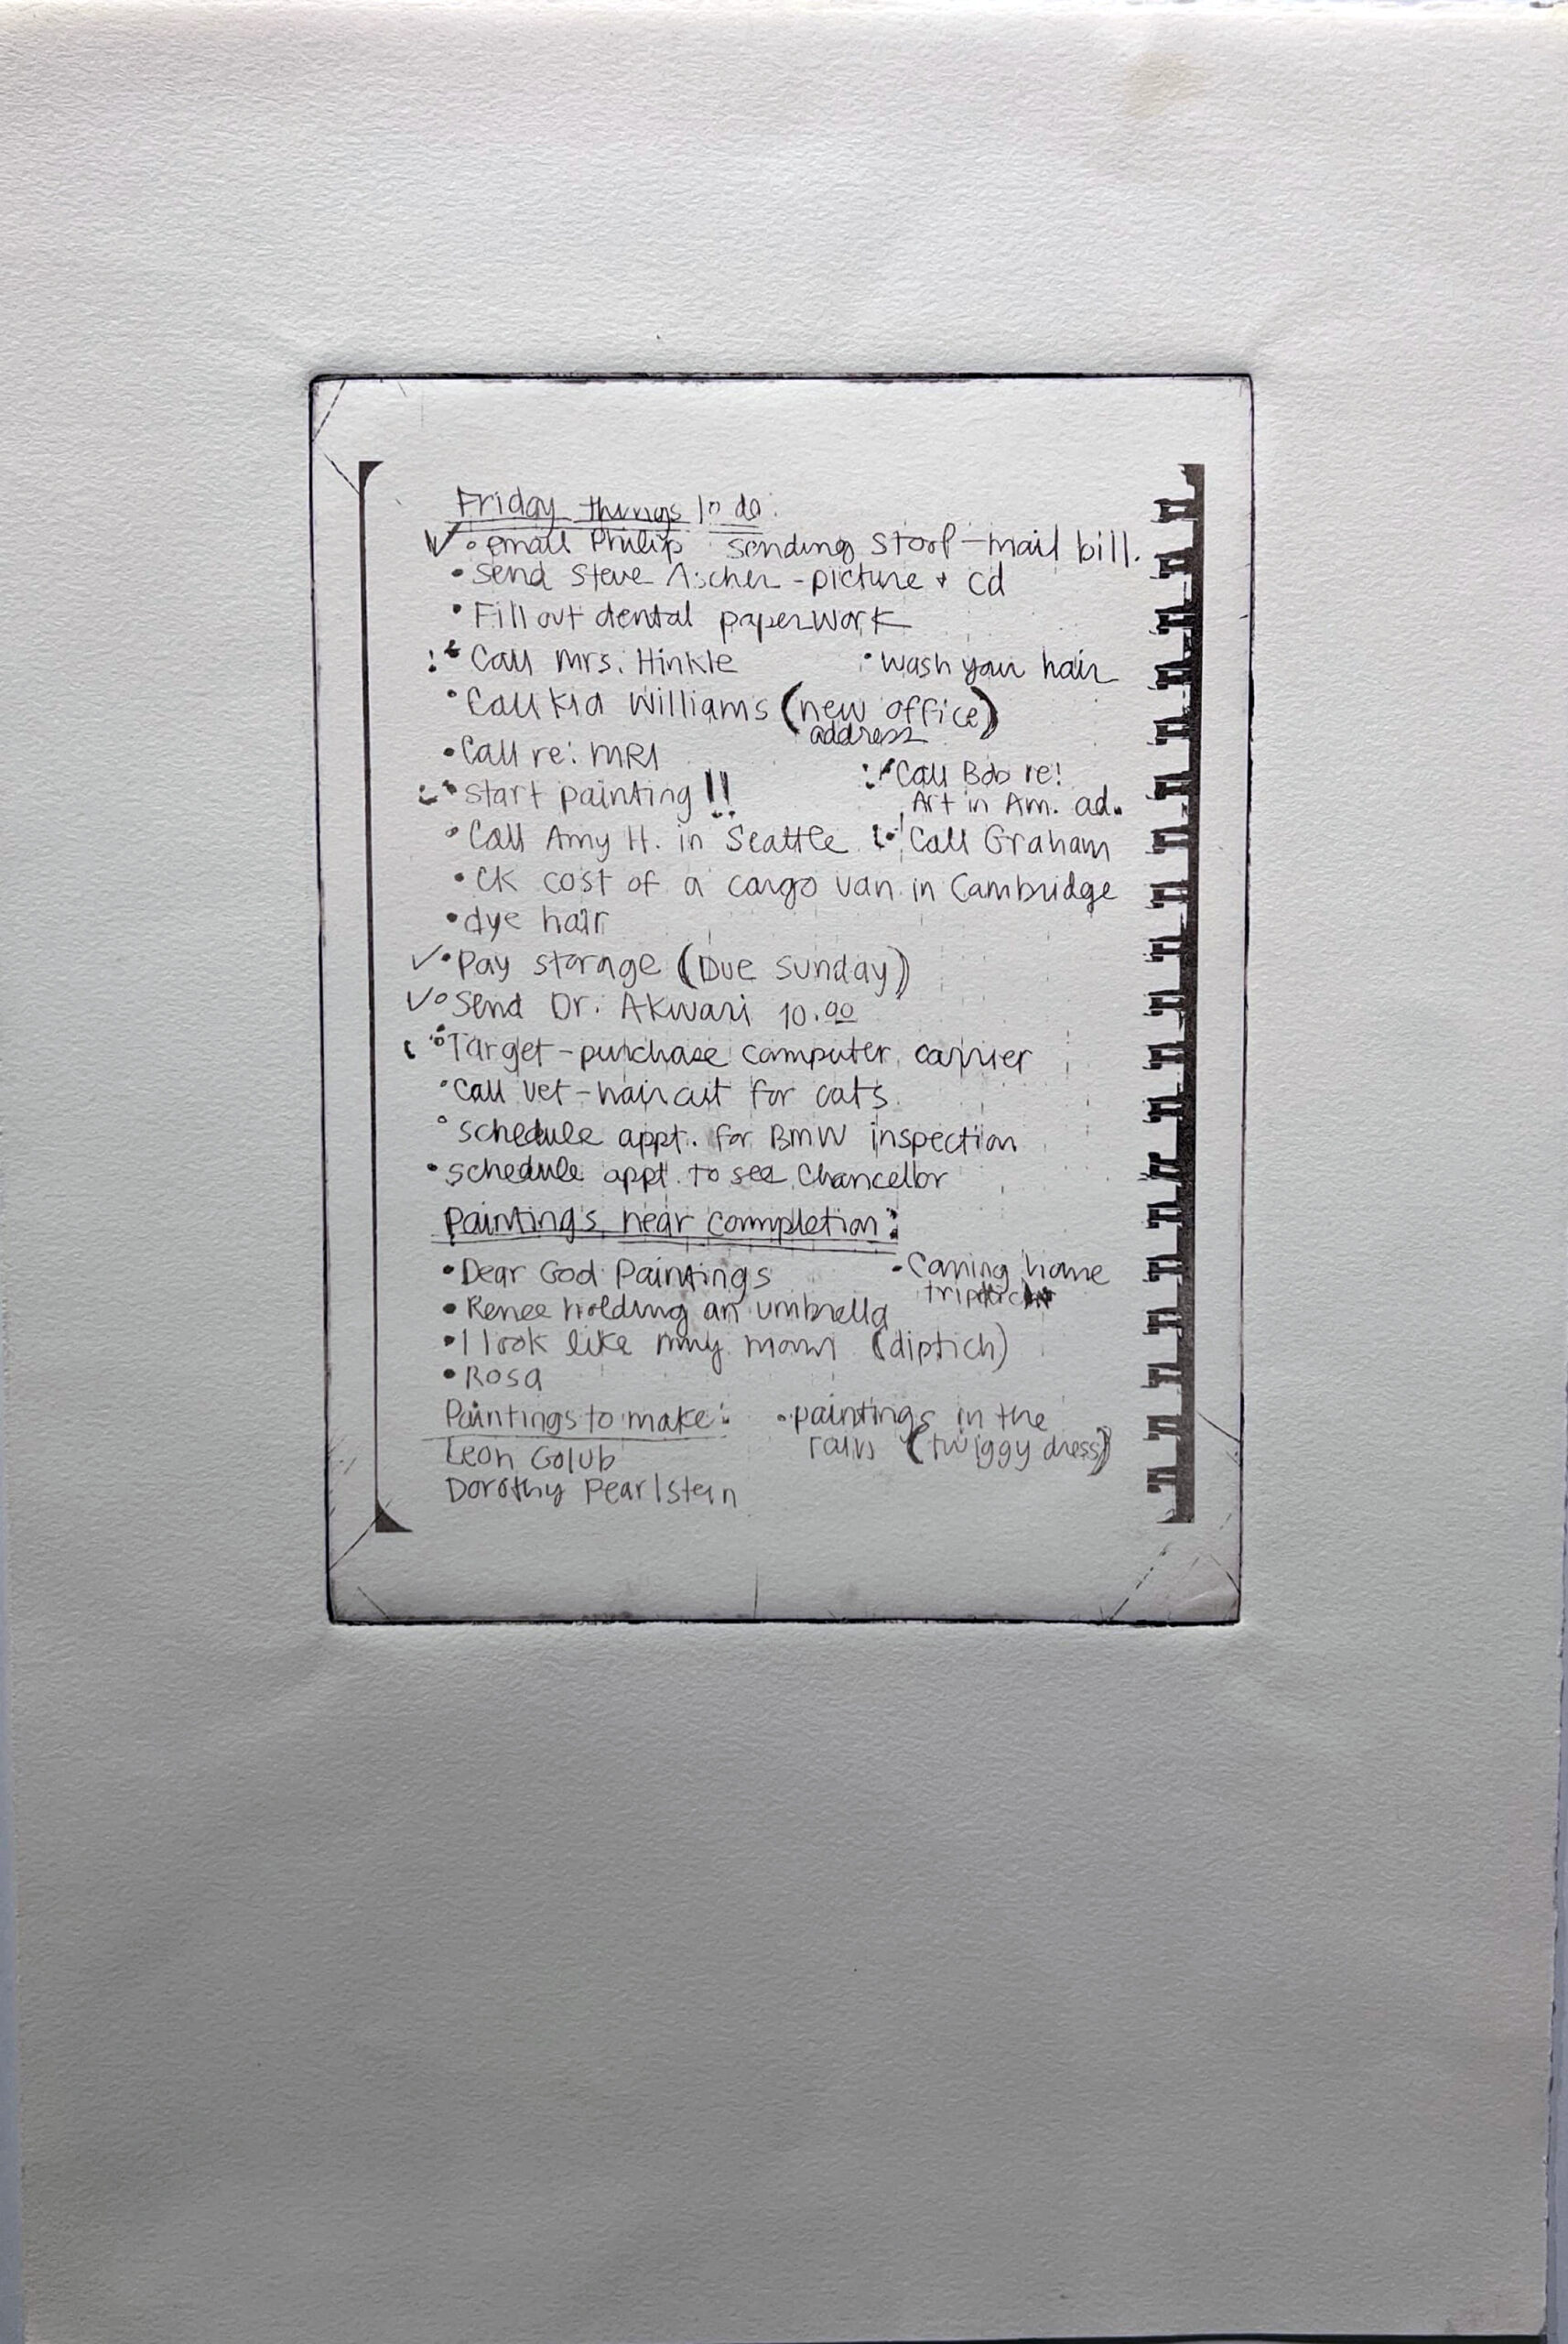 Friday things to do:
• email Philip sending - mail bill.
• Send Steve Ascher - picture + cd
• Fill out dental paperwork
• Call Mrs. Hinkle • wash your hair
• Call Williams (new office)
address
• Call re: MRI
• Call Bob re:
• start painting!!
Art in Am. ad.
• Call Amy H. in Seattle • Call Graham
• CK cost of a cargo van in Cambridge
• dye hair
✓• Pay storage (Due Sunday)
✓• Send Dr. Akwari 10.00
• Target - purchase computer carrier
• Call vet - haircut for cats
• schedule appt. for BMW inspection
• schedule appt. to see Chancellor
Paintings near completion:
• Dear God Paintings • Coming home
• Renee holding an umbrella
• I look like my mom (diptich)
• Rosa
Paintings to make: • paintings in the
rain (twiggy dress)
Leon Golub
Dorothy Pearlstein